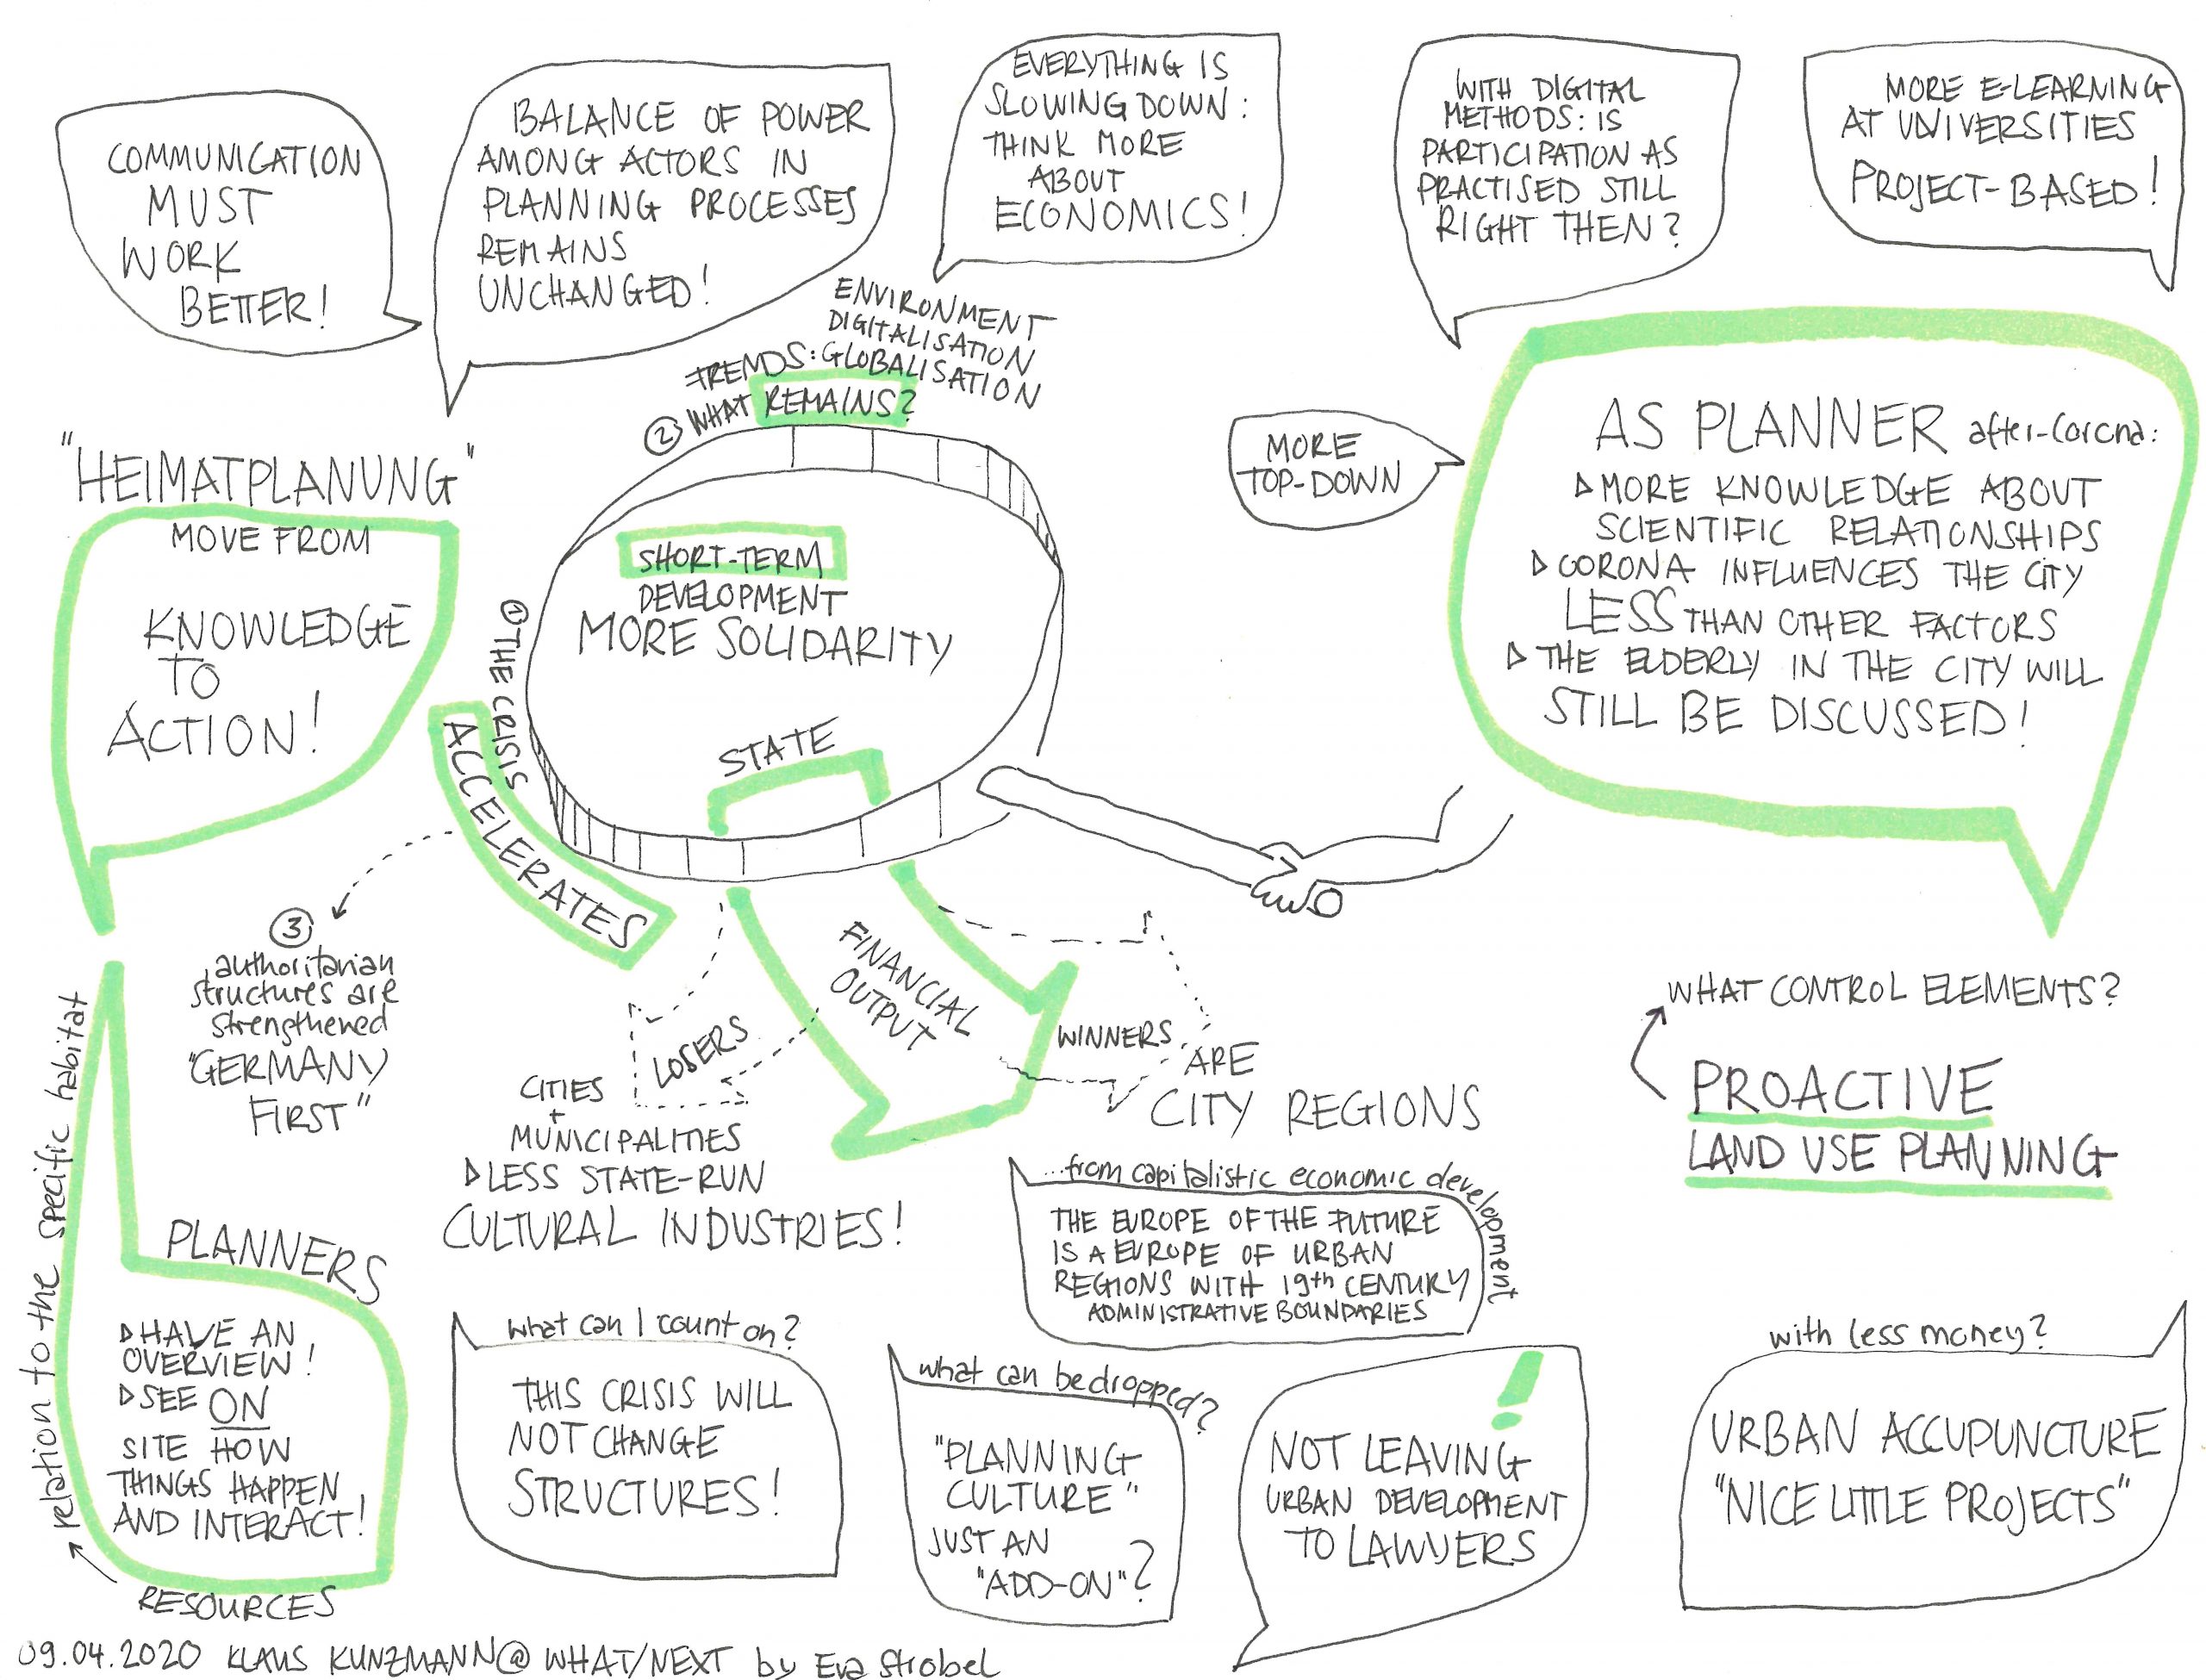 COMMUNICATION
MUST
WORK
BETTER!
BALANCE OF POWER
AMONG ACTORS IN
PLANNING PROCESSES
REMAINS
UNCHANGED!
EVERYTHING IS
SLOWING DOWN:
THINK MORE
ABOUT
ECONOMICS!
WITH DIGITAL
METHODS: IS
PARTICIPATION AS
PRACTISED STILL
RIGHT THEN?
MORE E-LEARNING
AT UNIVERSITIES
PROJECT-BASED!
ENVIRONMENT
DIGITALISATION
TRENDS: GLOBALISATION
② WHAT REMAINS?
"HEIMATPLANUNG"
MOVE FROM
KNOWLEDGE
TO
ACTION!
SHORT-TERM
DEVELOPMENT
MORE SOLIDARITY
STATE
① THE CRISIS
ACCELERATES
MORE
TOP-DOWN
AS PLANNER after-Corona:
▷ MORE KNOWLEDGE ABOUT
SCIENTIFIC RELATIONSHIPS
▷ CORONA INFLUENCES THE CITY
LESS THAN OTHER FACTORS
▷ THE ELDERLY IN THE CITY WILL
STILL BE DISCUSSED!
③
authoritarian
structures are
strengthened
"GERMANY
FIRST"
FINANCIAL
OUTPUT
LOSERS
CITIES
+
MUNICIPALITIES
▷ LESS STATE-RUN
CULTURAL INDUSTRIES!
WINNERS
ARE
CITY REGIONS
WHAT CONTROL ELEMENTS?
PROACTIVE
LAND USE PLANNING
...from capitalistic economic development
THE EUROPE OF THE FUTURE
IS A EUROPE OF URBAN
REGIONS WITH 19th CENTURY
ADMINISTRATIVE BOUNDARIES
PLANNERS
▷ HAVE AN
OVERVIEW!
▷ SEE ON
SITE HOW
THINGS HAPPEN
AND INTERACT!
relation to the specific habitat
RESOURCES
what can I count on?
THIS CRISIS WILL
NOT CHANGE
STRUCTURES!
what can be dropped?
"PLANNING
CULTURE"
JUST AN
"ADD-ON"?
!
NOT LEAVING
URBAN DEVELOPMENT
TO LAWYERS
with less money?
URBAN ACCUPUNCTURE
"NICE LITTLE PROJECTS"
09.04.2020 KLAUS KUNZMANN@ WHAT/NEXT by Eva Strobel